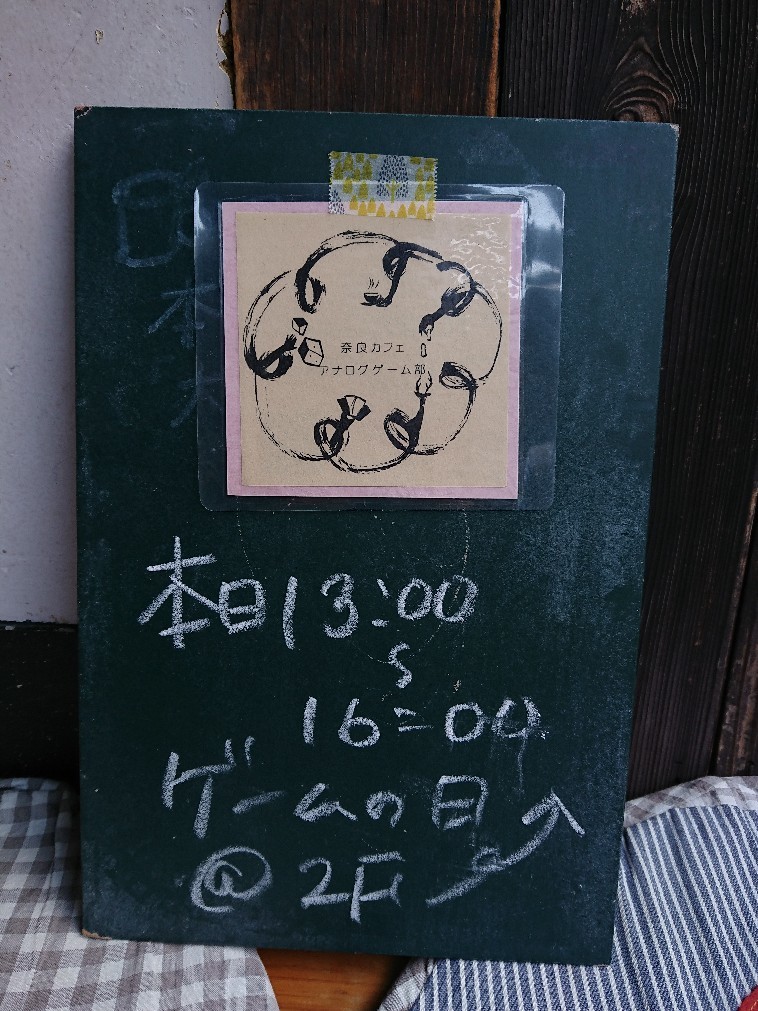 奈良カフェ
アナログゲーム部
本日13:00
〜
16:00
ゲームの日
@2F